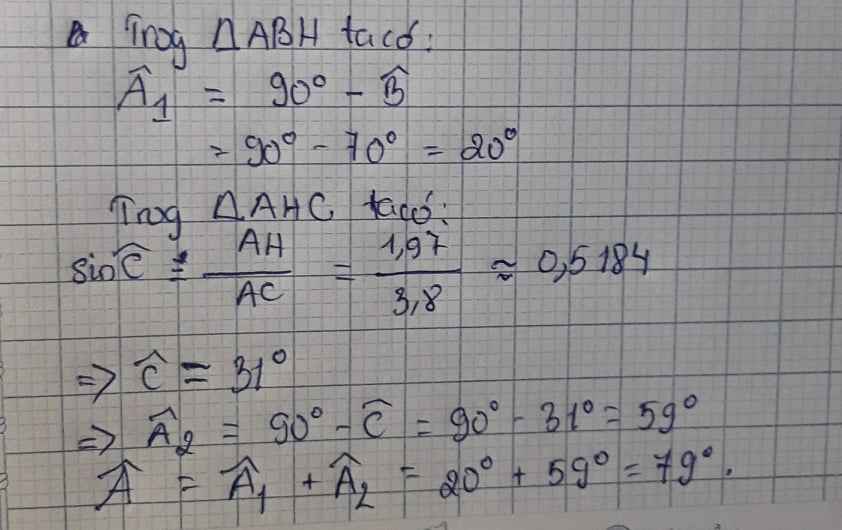 Trog ΔABH tacó:
Â₁ = 90° - B̂
= 90° - 70° = 20°
Trog ΔAHC tacó:
sinĈ = AH/AC = 1,97/3,8 ≈ 0,5184
=> Ĉ = 31°
=> Â₂ = 90° - Ĉ = 90° - 31° = 59°
Â = Â₁ + Â₂ = 20° + 59° = 79°.